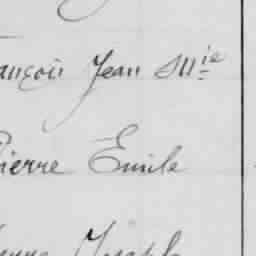 ançois Jean Mie
Pierre Emile
Joseph